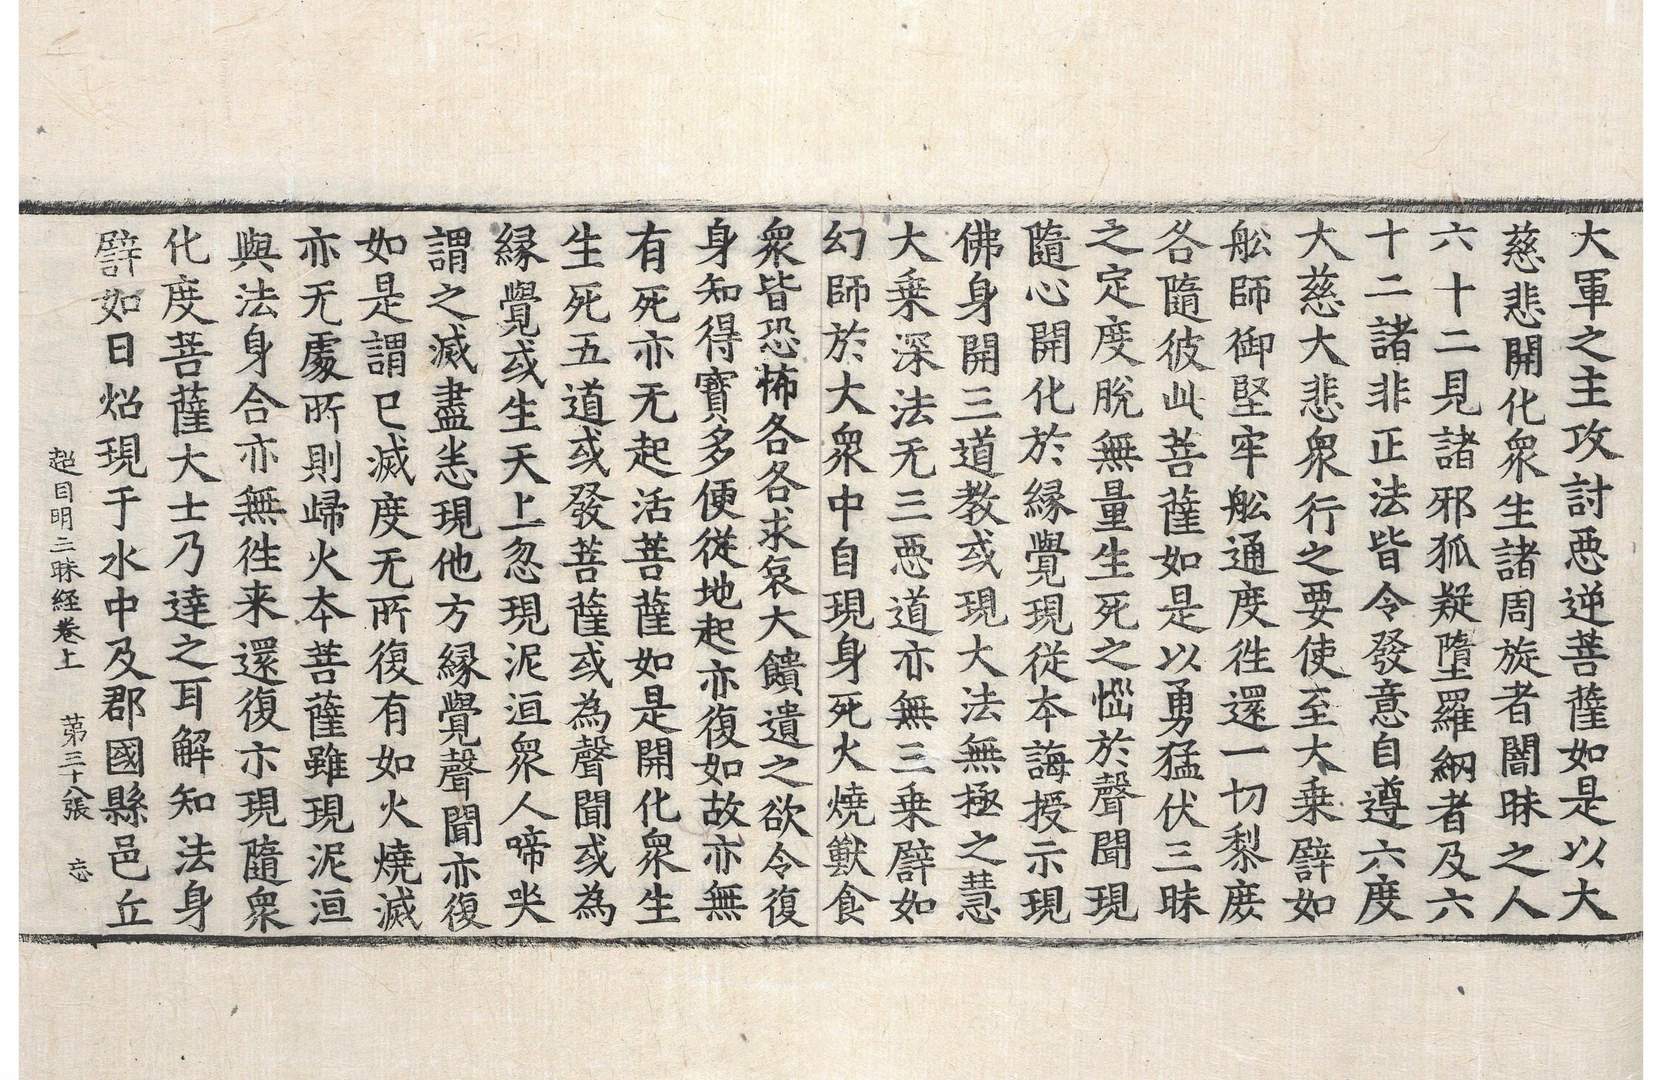 大軍之主攻討惡逆菩薩如是以大
慈悲開化衆生諸周旋者闇昧之人
六十二見諸邪狐疑墮羅網者及六
十二諸非正法皆令發意自遵六度
大慈大悲衆行之要使至大乗譬如
舩師御堅牢舩通度徃還一切黎庶
各隨彼此菩薩如是以勇猛伏三昧
之定度脫無量生死之惱於聲聞現
隨心開化於縁覺現從本誨授示現
佛身開三道教或現大法無極之慧
大乗深法无三惡道亦無三乗譬如
幻師於大衆中自現身死火燒獸食
衆皆恐怖各各求哀大饋遺之欲令復
身知得寶多便從地起亦復如故亦無
有死亦无起活菩薩如是開化衆生
生死五道或發菩薩或為聲聞或為
縁覺或生天上忽現泥洹衆人啼哭
謂之滅盡恙現他方縁覺聲聞亦復
如是謂已滅度无所復有如火燒滅
亦无處所則歸火本菩薩雖現泥洹
與法身合亦無徃来還復亦現隨衆
化度菩薩大士乃達之耳解知法身
譬如日炤現于水中及郡國縣邑丘
超日明三昧経卷上 第三十八張 忘